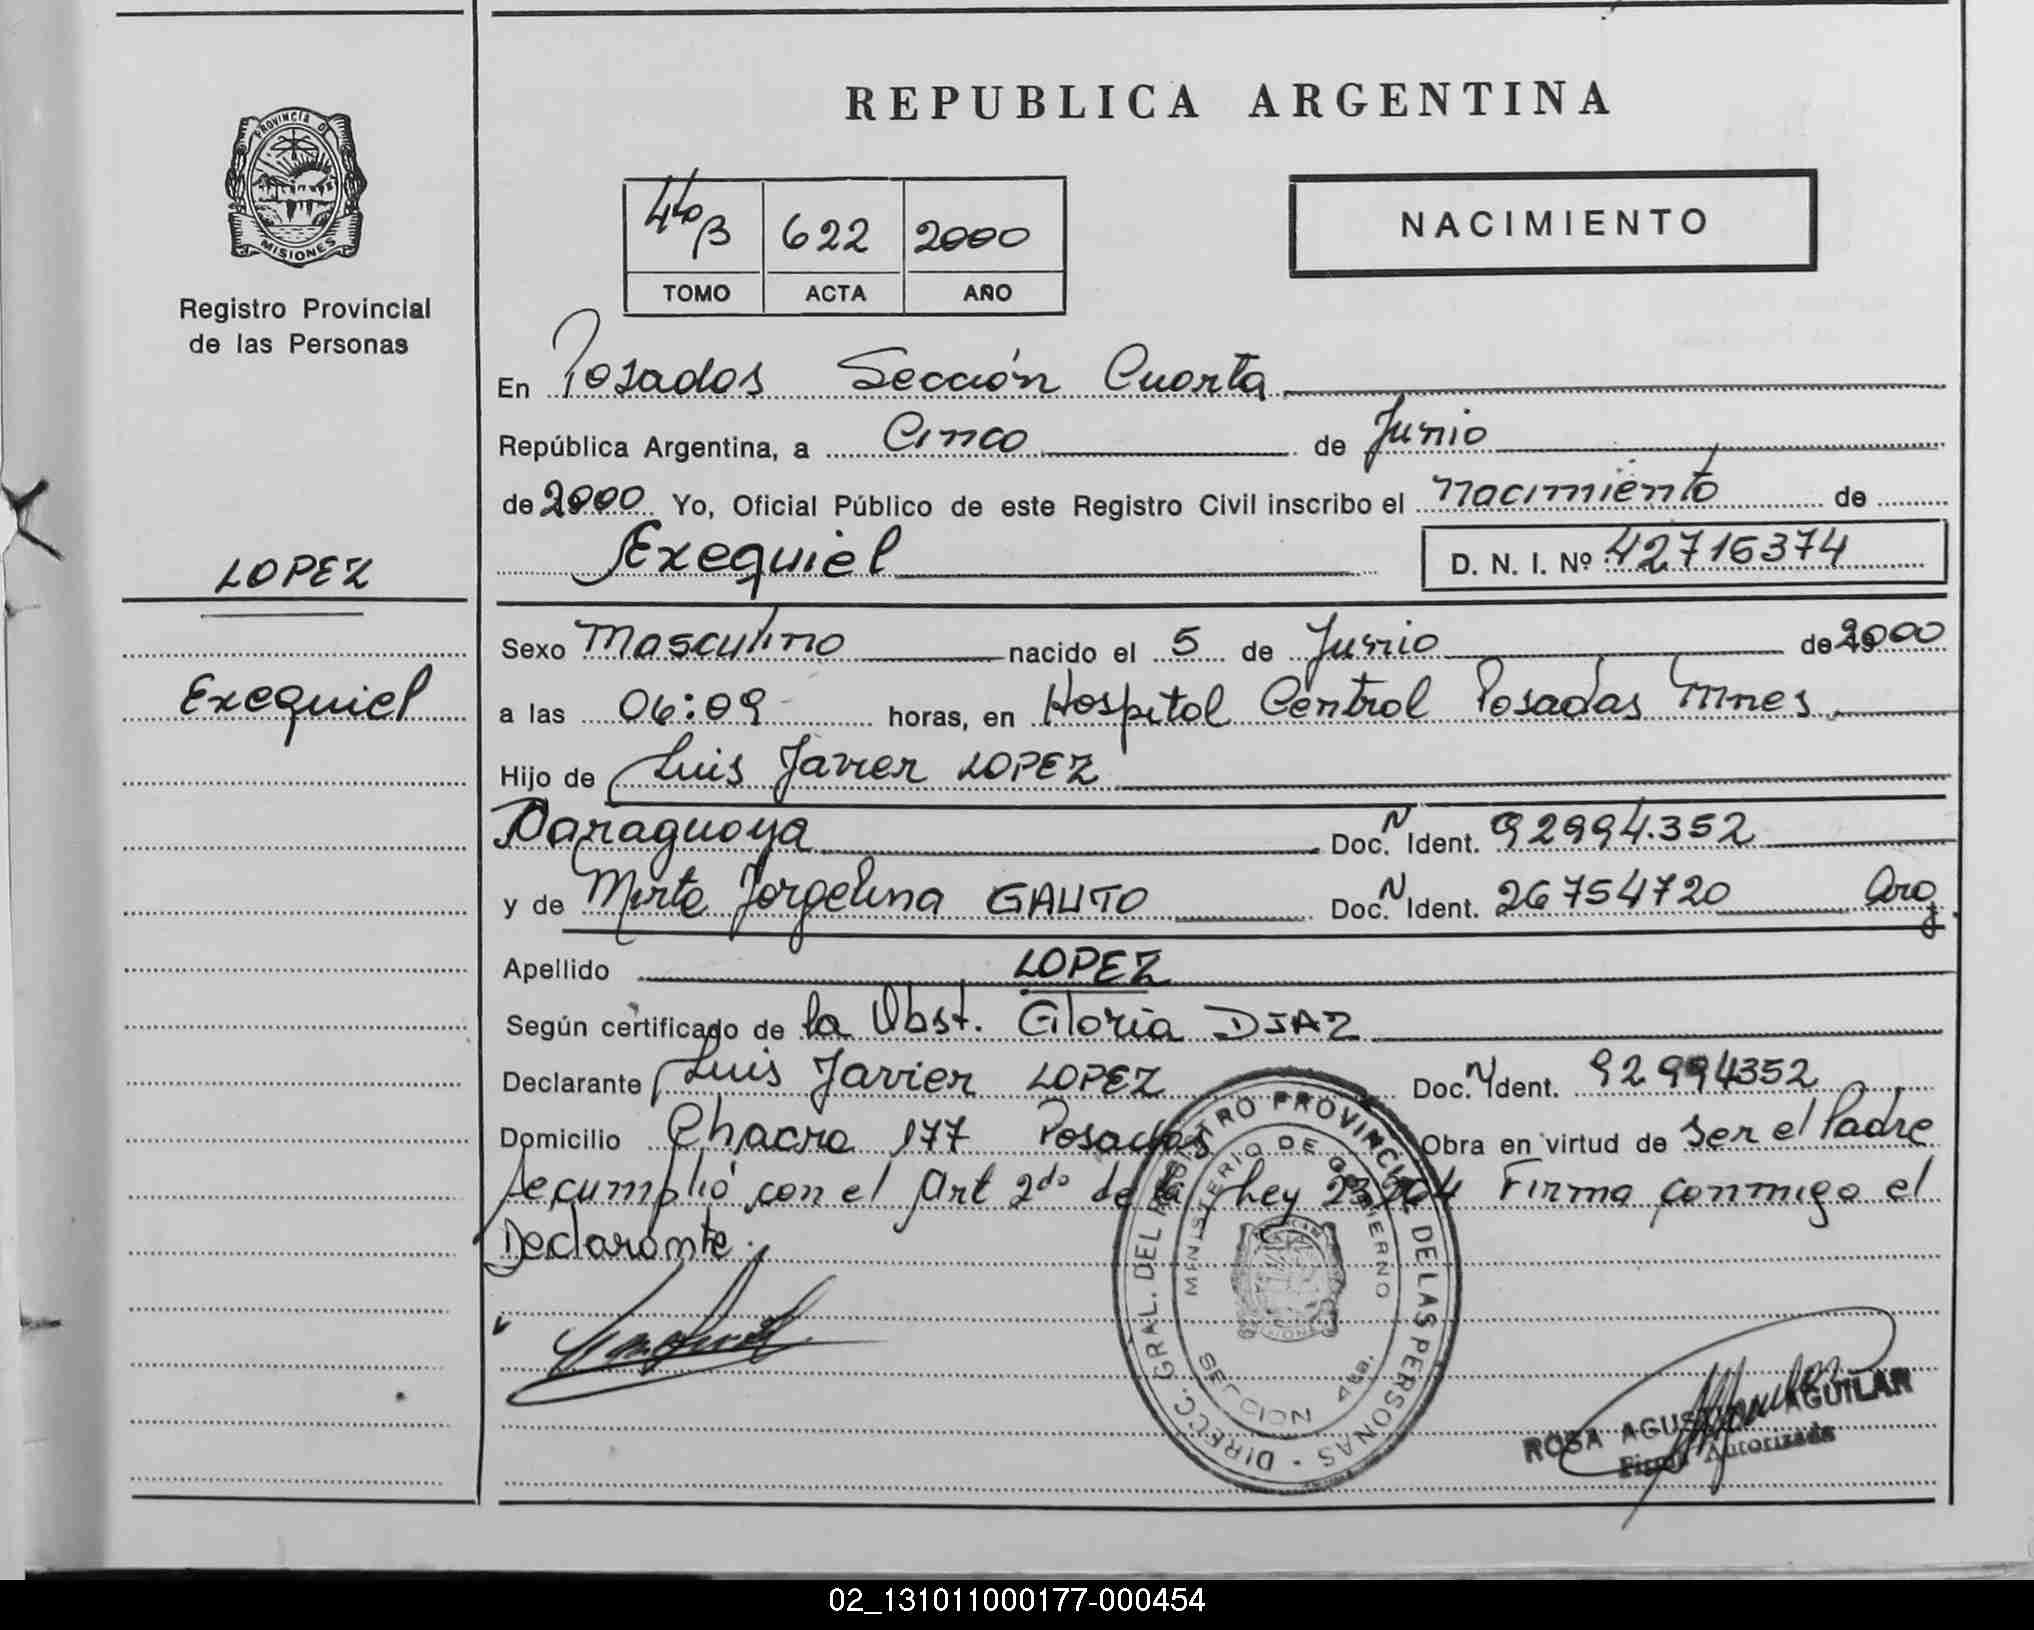 PROVINCIA DE
MISIONES
Registro Provincial
de las Personas
LOPEZ
Exequiel
REPUBLICA ARGENTINA
NACIMIENTO
4to B 622 2000
TOMO ACTA AÑO
En Posadas Sección Cuarta
República Argentina, a Cinco de Junio
de 2000 Yo, Oficial Público de este Registro Civil inscribo el nacimiento de
Exequiel D. N. I. Nº 42716374
Sexo Masculino nacido el 5 de Junio de 2000
a las 06:09 horas, en Hospital Central Posadas Mnes
Hijo de Luis Javier LOPEZ
Paraguaya Doc. N Ident. 92994.352
y de Mirta Jorgelina GAUTO Doc. N Ident. 26754720 Arg.
Apellido LOPEZ
Según certificado de la Obst. Gloria DIAZ
Declarante Luis Javier LOPEZ Doc. N Ident. 92994352
Domicilio Chacra 177 Posadas Obra en virtud de Ser el Padre
Se cumplió con el Art 2do de la Ley Firma conmigo el
Declarante.
DIRECC. GRAL. DEL REGISTRO PROVINCIAL DE LAS PERSONAS
MINISTERIO DE GOBIERNO
SECCION 4ta.
ROSA AGUSTINA AGUILAR
Firma Autorizada
02_131011000177-000454